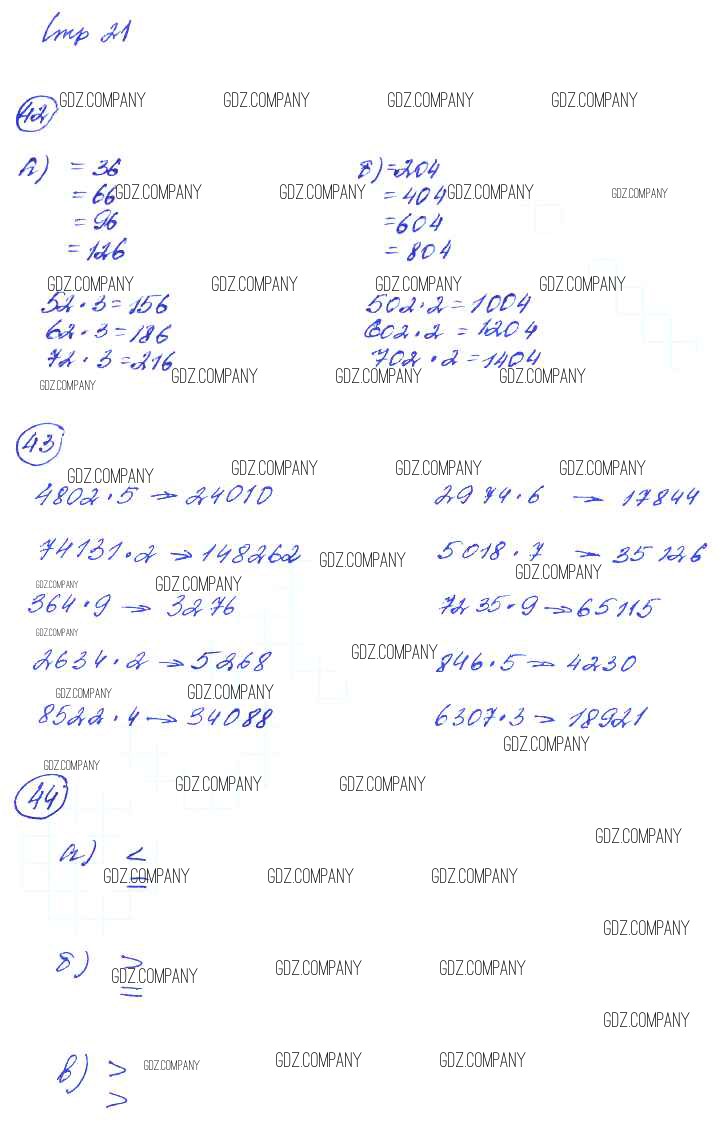 Стр 21
GDZ.COMPANY GDZ.COMPANY GDZ.COMPANY GDZ.COMPANY
42
а) = 36 б) = 204
= 66 GDZ.COMPANY GDZ.COMPANY = 404 GDZ.COMPANY GDZ.COMPANY
= 96 = 604
= 126 = 804
GDZ.COMPANY GDZ.COMPANY GDZ.COMPANY GDZ.COMPANY
52 · 3 = 156 502 · 2 = 1004
62 · 3 = 186 602 · 2 = 1204
72 · 3 = 216 702 · 2 = 1404
GDZ.COMPANY GDZ.COMPANY GDZ.COMPANY GDZ.COMPANY
43
GDZ.COMPANY GDZ.COMPANY GDZ.COMPANY GDZ.COMPANY
4802 · 5 → 24010 2974 · 6 → 17844
74131 · 2 → 148262 GDZ.COMPANY 5018 · 7 → 35126
GDZ.COMPANY GDZ.COMPANY GDZ.COMPANY
364 · 9 → 3276 7235 · 9 → 65115
GDZ.COMPANY GDZ.COMPANY
2634 · 2 → 5268 846 · 5 → 4230
GDZ.COMPANY GDZ.COMPANY
8522 · 4 → 34088 6307 · 3 → 18921
GDZ.COMPANY
GDZ.COMPANY GDZ.COMPANY GDZ.COMPANY
44
GDZ.COMPANY
а) <
GDZ.COMPANY GDZ.COMPANY GDZ.COMPANY
=
GDZ.COMPANY
б) >
GDZ.COMPANY GDZ.COMPANY GDZ.COMPANY
=
GDZ.COMPANY
в) > GDZ.COMPANY GDZ.COMPANY GDZ.COMPANY
>